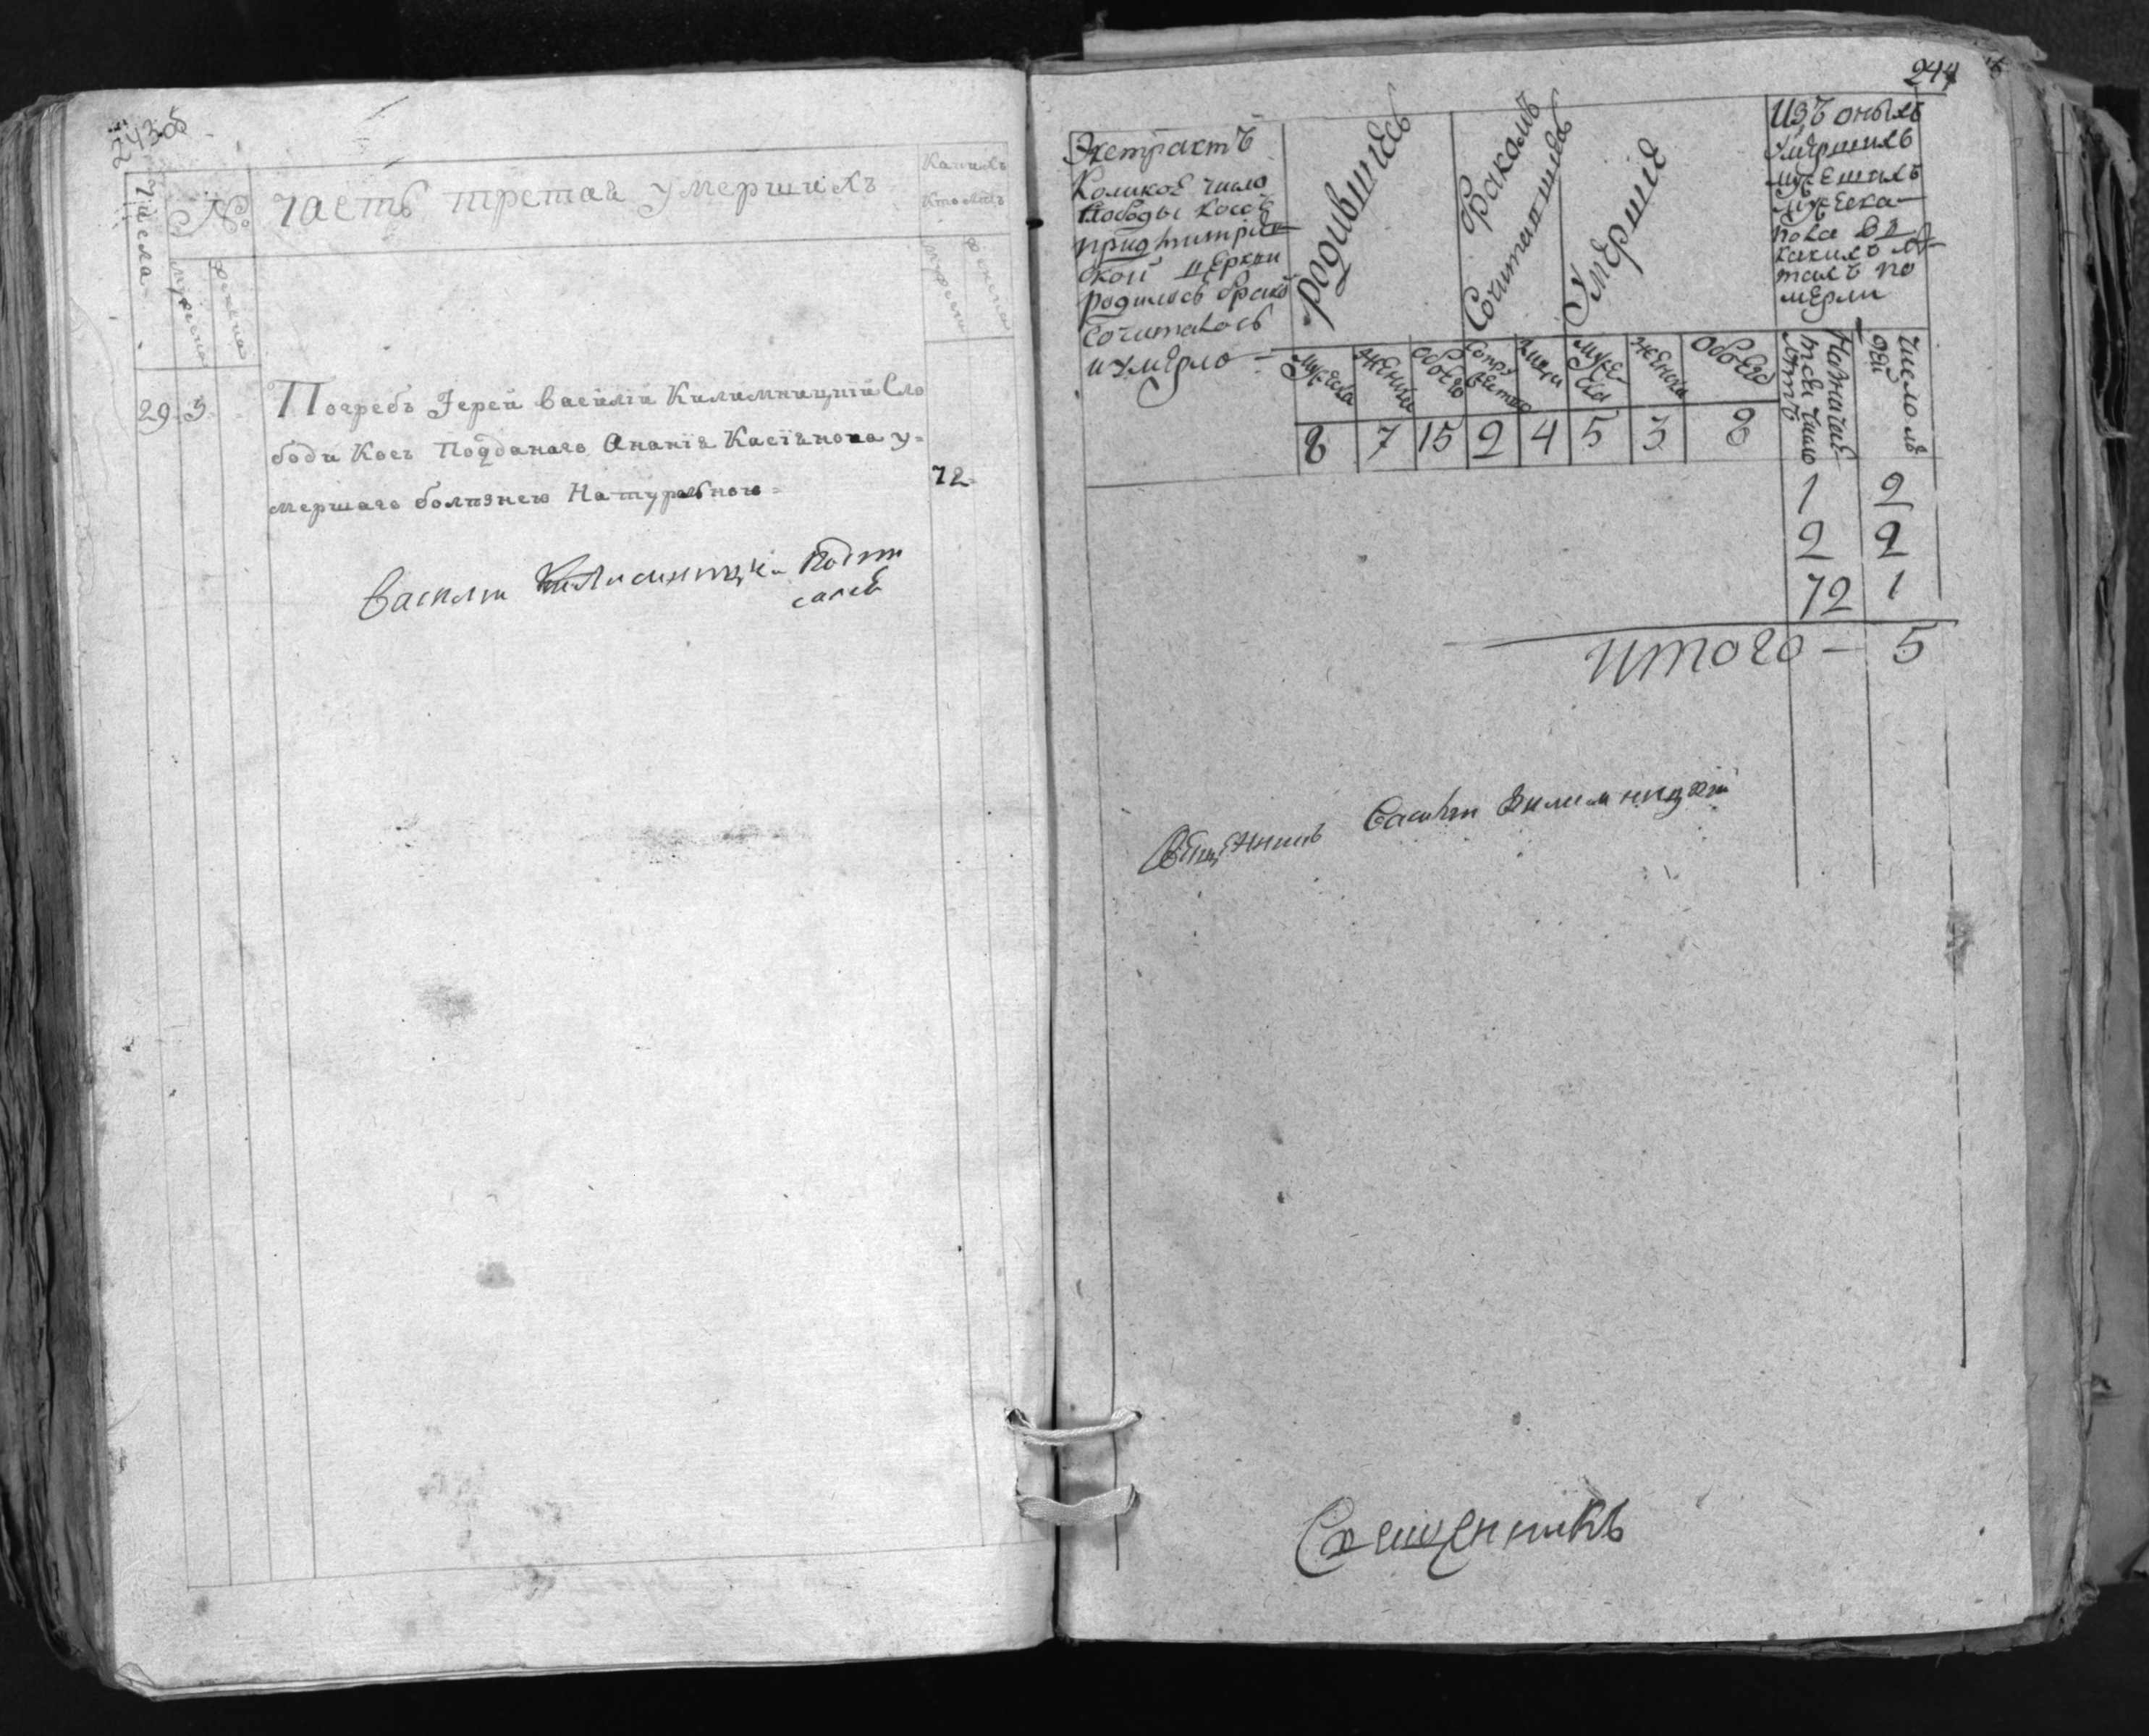 243об
Числа
№
Часть третая умершихъ
мужеска
женска
мужеска
женска
29. 5.
Погребъ Іерей Василій Килимницкій Сло
боди Косъ Подданаго Ананія Касіянова у=
мершаго болѣзнею Натуралною=
72=
Василии Килимницки
244
Экстрактъ
Коликое число
слободы Косъ
придмитриев
ской церкви
родилось брако
сочиталось
и умерло =
родившіесь
Бракомъ
Сочитавшиесь
Умершіе
Изъ оныхъ
умершихъ
мужеска
пола въ
какихъ лѣ
тахъ по
мерли
мужеска
женск
обоего
мужеска
женска
обоего
число
лѣтъ
число лю
дей
8 7 15 2 4 5 3 8
1 2
2 2
72 1
итого — 5
Священникъ Василии Килимницкій
Священникъ